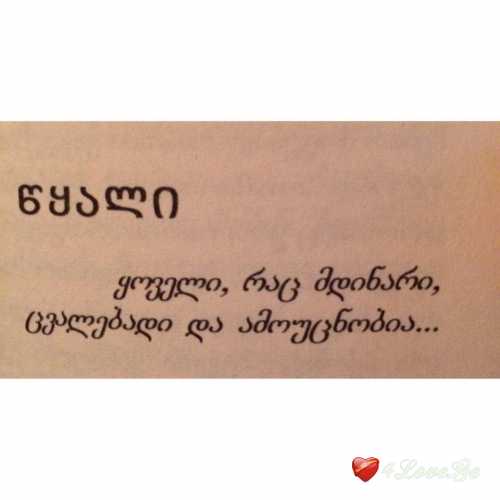 წყალი
ყოველი, რაც მდინარი,
ცვალებადი და ამოუცნობია...
4Love.Ge